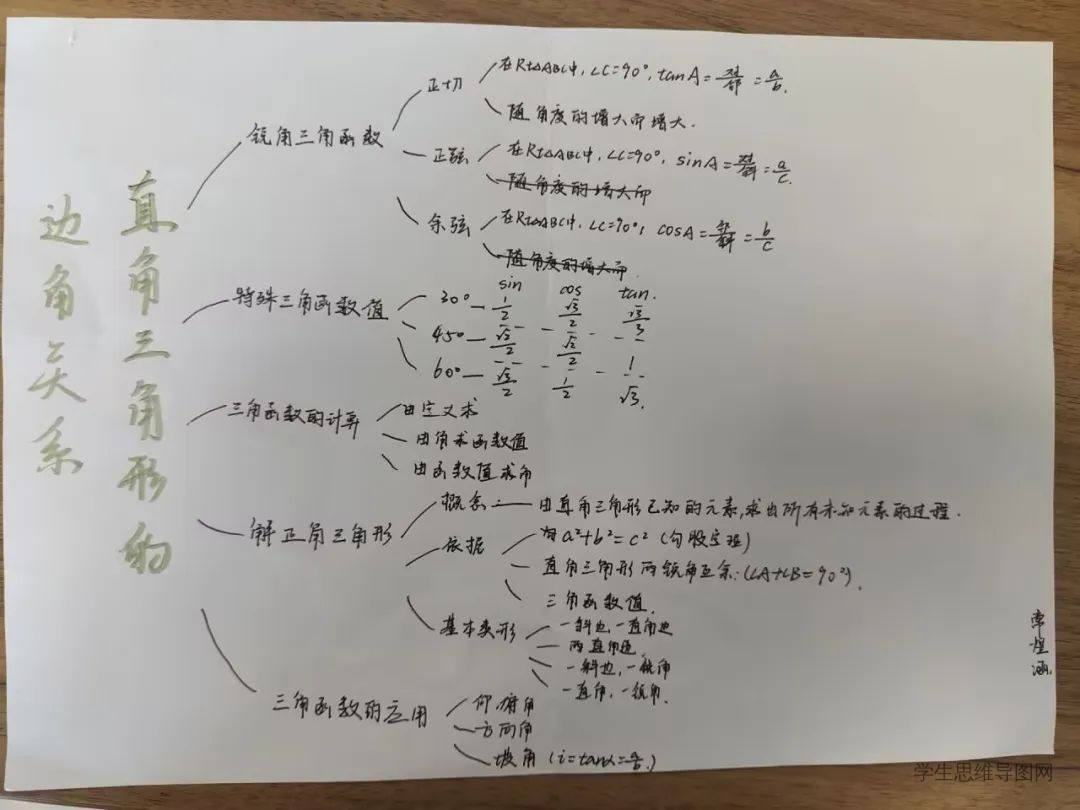 直角三角形的
边角关系
锐角三角函数
正切
在Rt△ABC中,∠C=90°,tanA=对/邻=a/b.
随角度的增大而增大.
正弦
在Rt△ABC中,∠C=90°,sinA=对/斜=a/c.
随角度的增大而
余弦
在Rt△ABC中,∠C=90°,cosA=邻/斜=b/c
随角度的增大而
特殊三角函数值
sin cos tan.
30° 1/2 √3/2 √3/3
45° √2/2 √2/2 1
60° √3/2 1/2 √3.
三角函数的计算
由定义求
由角求函数值
由函数值求角
解正角三角形
概念
由直角三角形已知的元素,求出所有未知元素的过程.
依据
a²+b²=c²(勾股定理)
直角三角形两锐角互余:(∠A+∠B=90°).
三角函数值.
基本类形
一斜边,一直角边
两直角边
一斜边,一锐角
一直角,一锐角.
三角函数的应用
仰俯角
方向角
坡角(i=tanα=a/b.)
涵
学生思维导图网